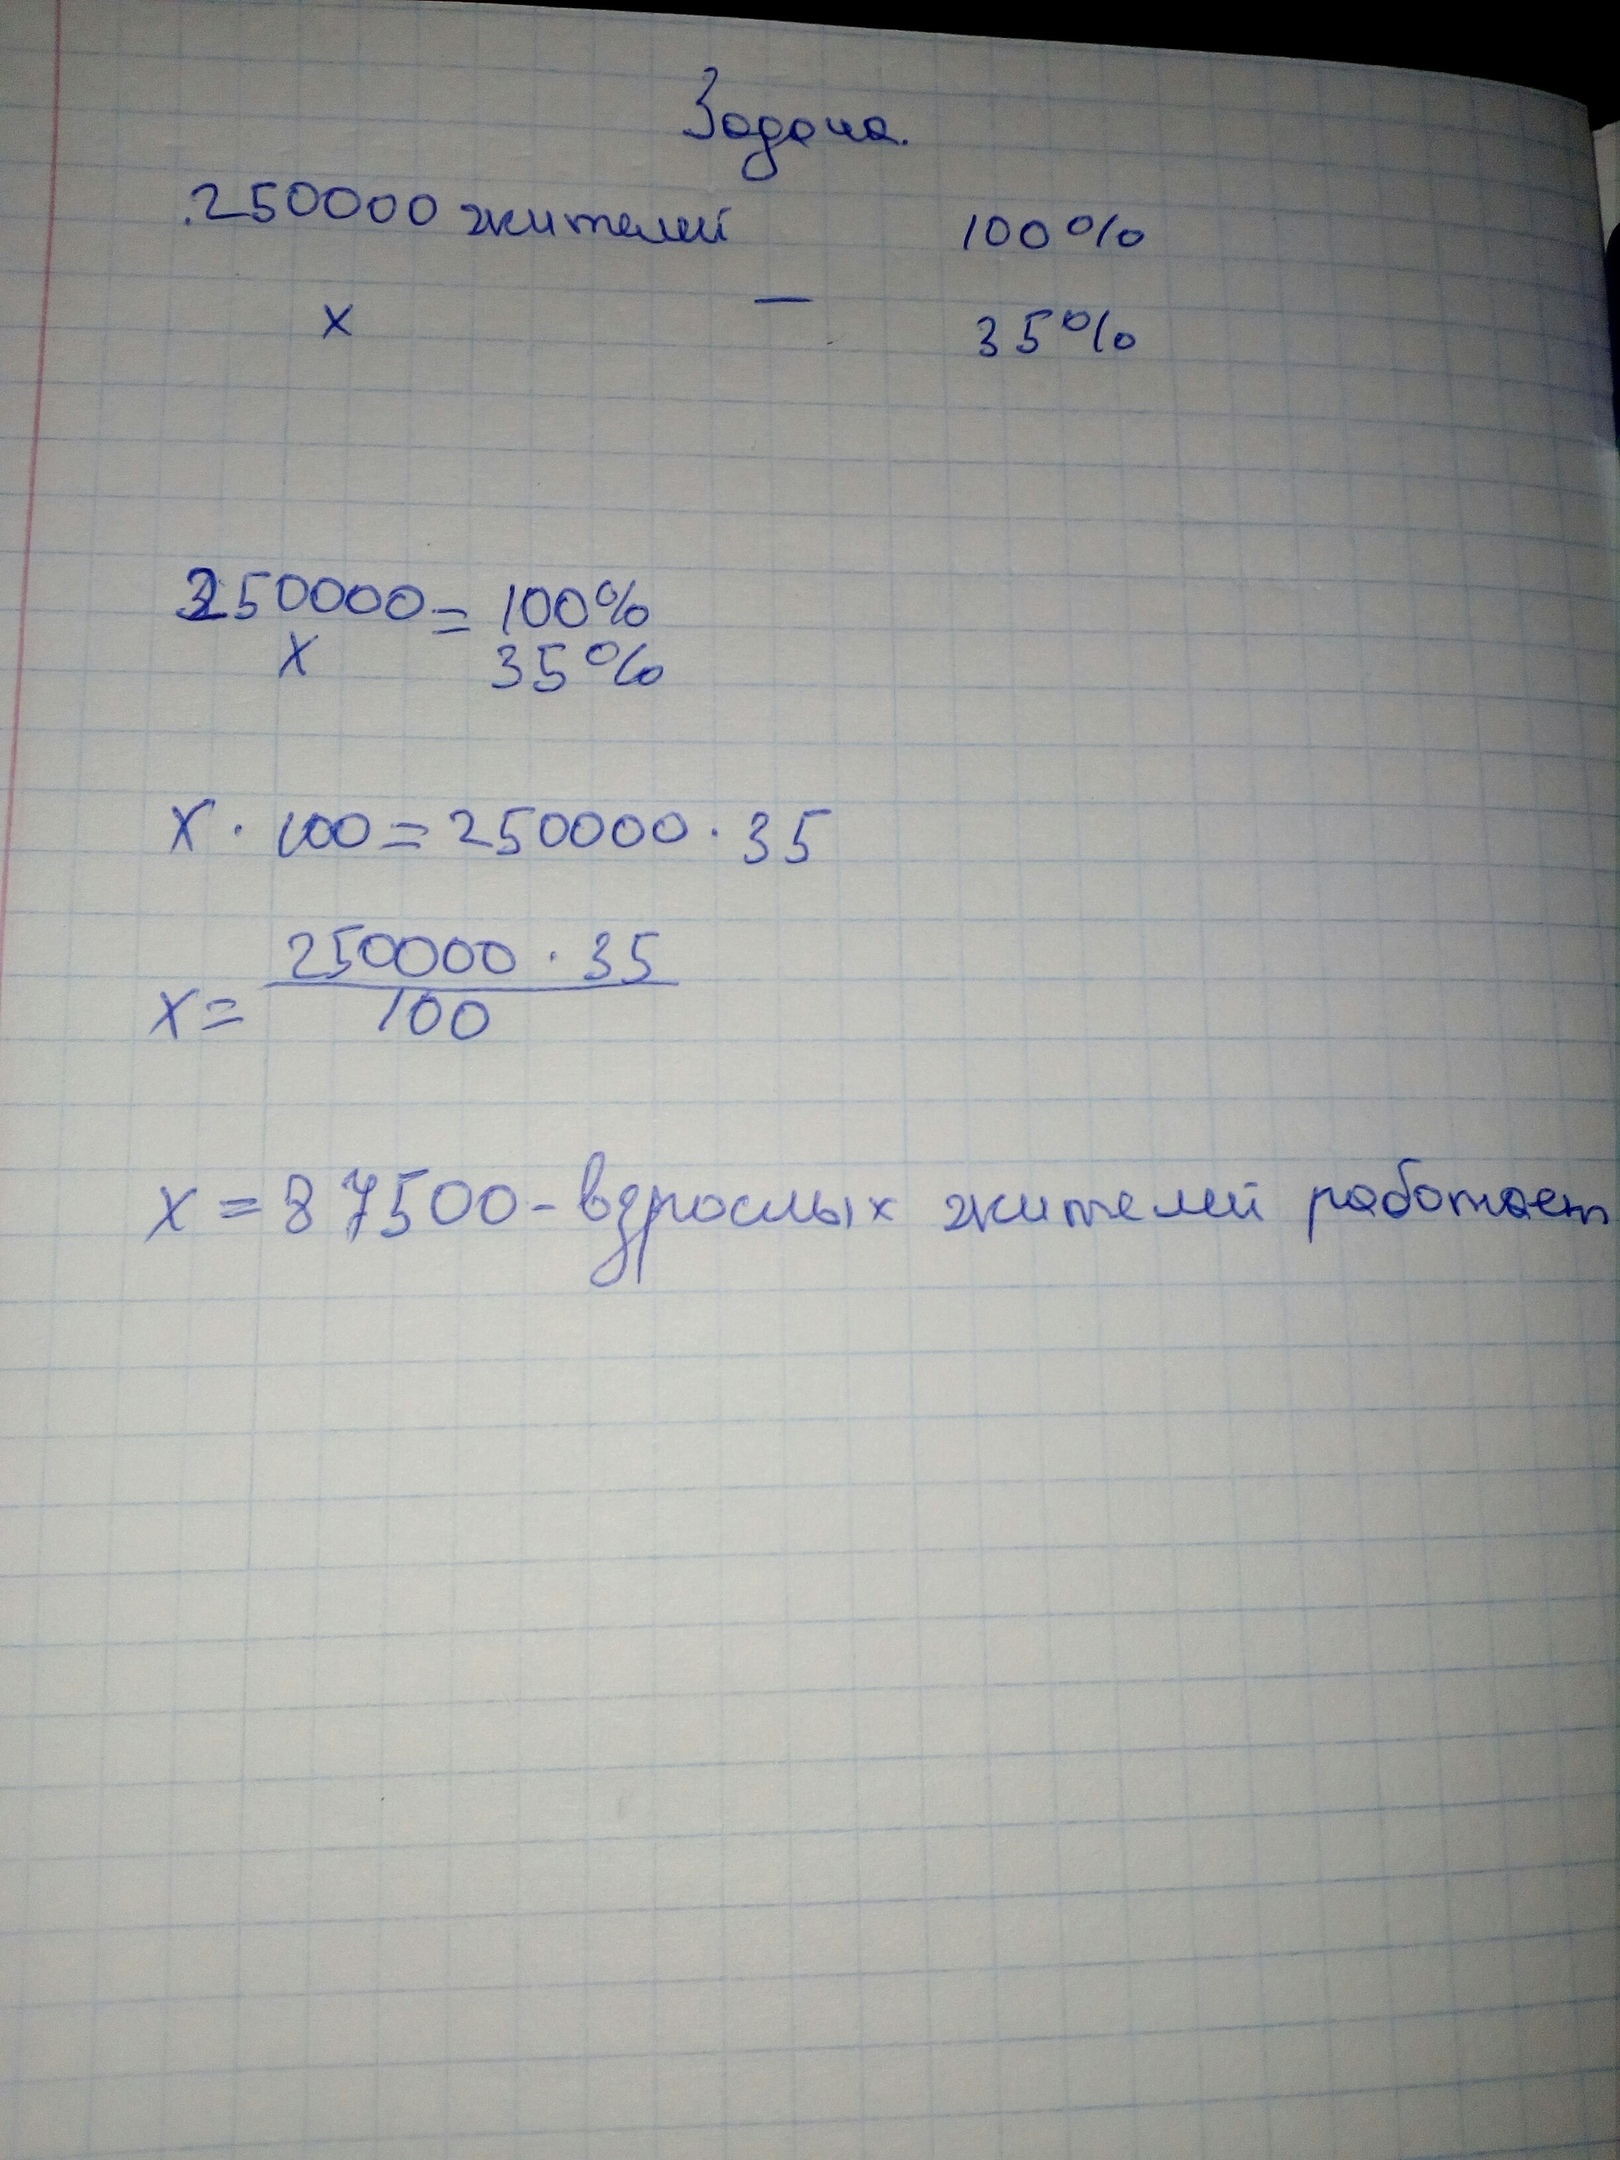 Задача.
250000 жителей 100%
x — 35%
250000 = 100%
x 35%
x · 100 = 250000 · 35
250000 · 35
x = 100
x = 87500 - взрослых жителей работает